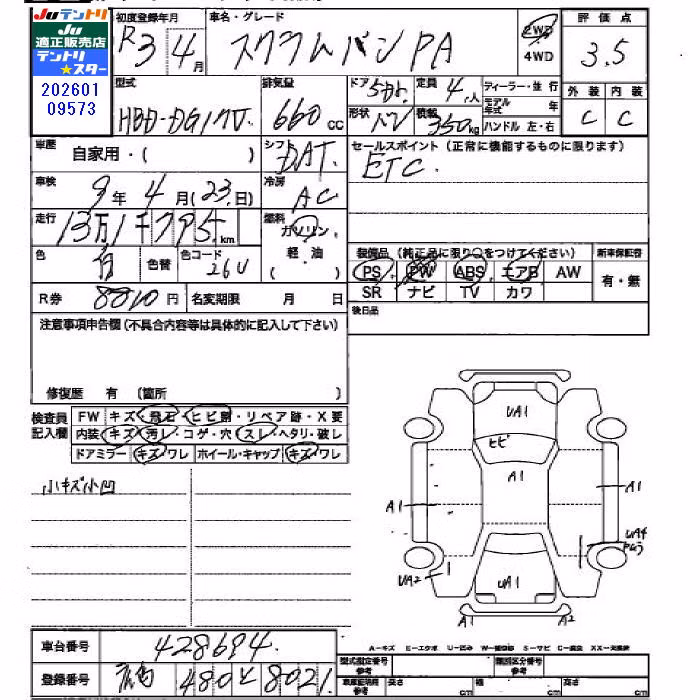 Juテントリ
Ju
適正販売店
テントリ
★スター
202601
09573
初度登録年月
R3 4月
車名・グレード
スクラムバン PA
2WD
4WD
評価点
3.5
型式
HBD-DG17V
排気量
660 cc
ドア 5Dr. 定員 4人
ディーラー・並行
形状 積載 350kg
モデル年式 年
ハンドル 左・右
外装 内装
C C
車歴
自家用・( )
シフト
DAT
セールスポイント(正常に機能するものに限ります)
ETC
車検
9年 4月(23日)
冷房
AC
走行
km
燃料
ガソリン
軽・油
( )
色
白
色替
色コード
26U
装備品(純正品に限り○をつけてください)
PS PW ABS エアB AW
SR ナビ TV カワ
新車保証書
有・無
R券
8810円
名変期限 月 日
後日品
注意事項申告欄(不具合内容等は具体的に記入して下さい)
修復歴 有 (箇所 )
検査員
記入欄
FW キズ・飛石・ヒビ割・リペア跡・X要
内装 キズ・汚レ・コゲ・穴・スレ・ヘタリ・破レ
ドアミラー キズ・ワレ ホイール・キャップ キズ・ワレ
小キズ小凹
UA1
ヒビ
A1
A1
A1
UA4
UA2
UA1
A1
A2
車台番号
428694
登録番号
広島 480 と 8021
A−キズ E−エクボ U−凹み S−サビ C−腐食 XX−交換済
型式指定番号
参考
類別区分番号
参考
車庫証明用
参考
長さ cm
幅 cm
高さ cm